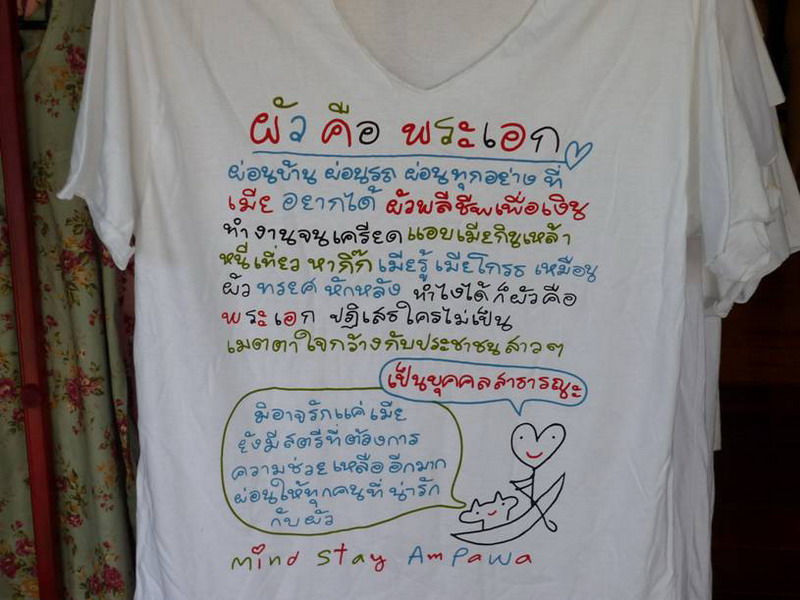 ผัว คือ พระเอก
ผ่อนบ้าน ผ่อนรถ ผ่อนทุกอย่าง ที่
เมีย อยากได้ ผัวพลีชีพเพื่อเงิน
ทำงานจนเครียด แอบเมียกินเหล้า
หนีเที่ยว หากิ๊ก เมียรู้ เมียโกรธ เหมือน
ผัว ทรยศ หักหลัง ทำไงได้ ก็ผัวคือ
พระเอก ปฏิเสธใครไม่เป็น
เมตตาใจกว้างกับประชาชนสาวๆ
เป็นบุคคลสาธารณะ
มิอาจรักแค่เมีย
ยังมีสตรีที่ต้องการ
ความช่วยเหลืออีกมาก
ผ่อนให้ทุกคนที่น่ารัก
กับผัว
Mind Stay AmPawa